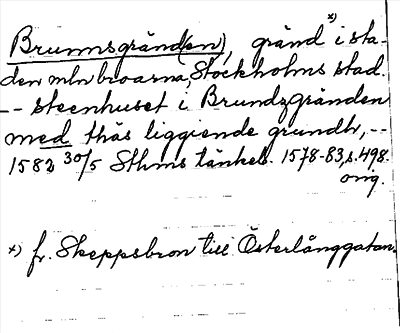 Brunnsgränd(en), gränd x) i sta-
den mln broarna, Stockholms stad.
-- steenhuset i Brundzgränden
med thäs liggiende grundh, --
1582 30/5 Sthms tänkeb. 1578-83, s. 498.
orig.
x) fr. Skeppsbron till Österlånggatan.